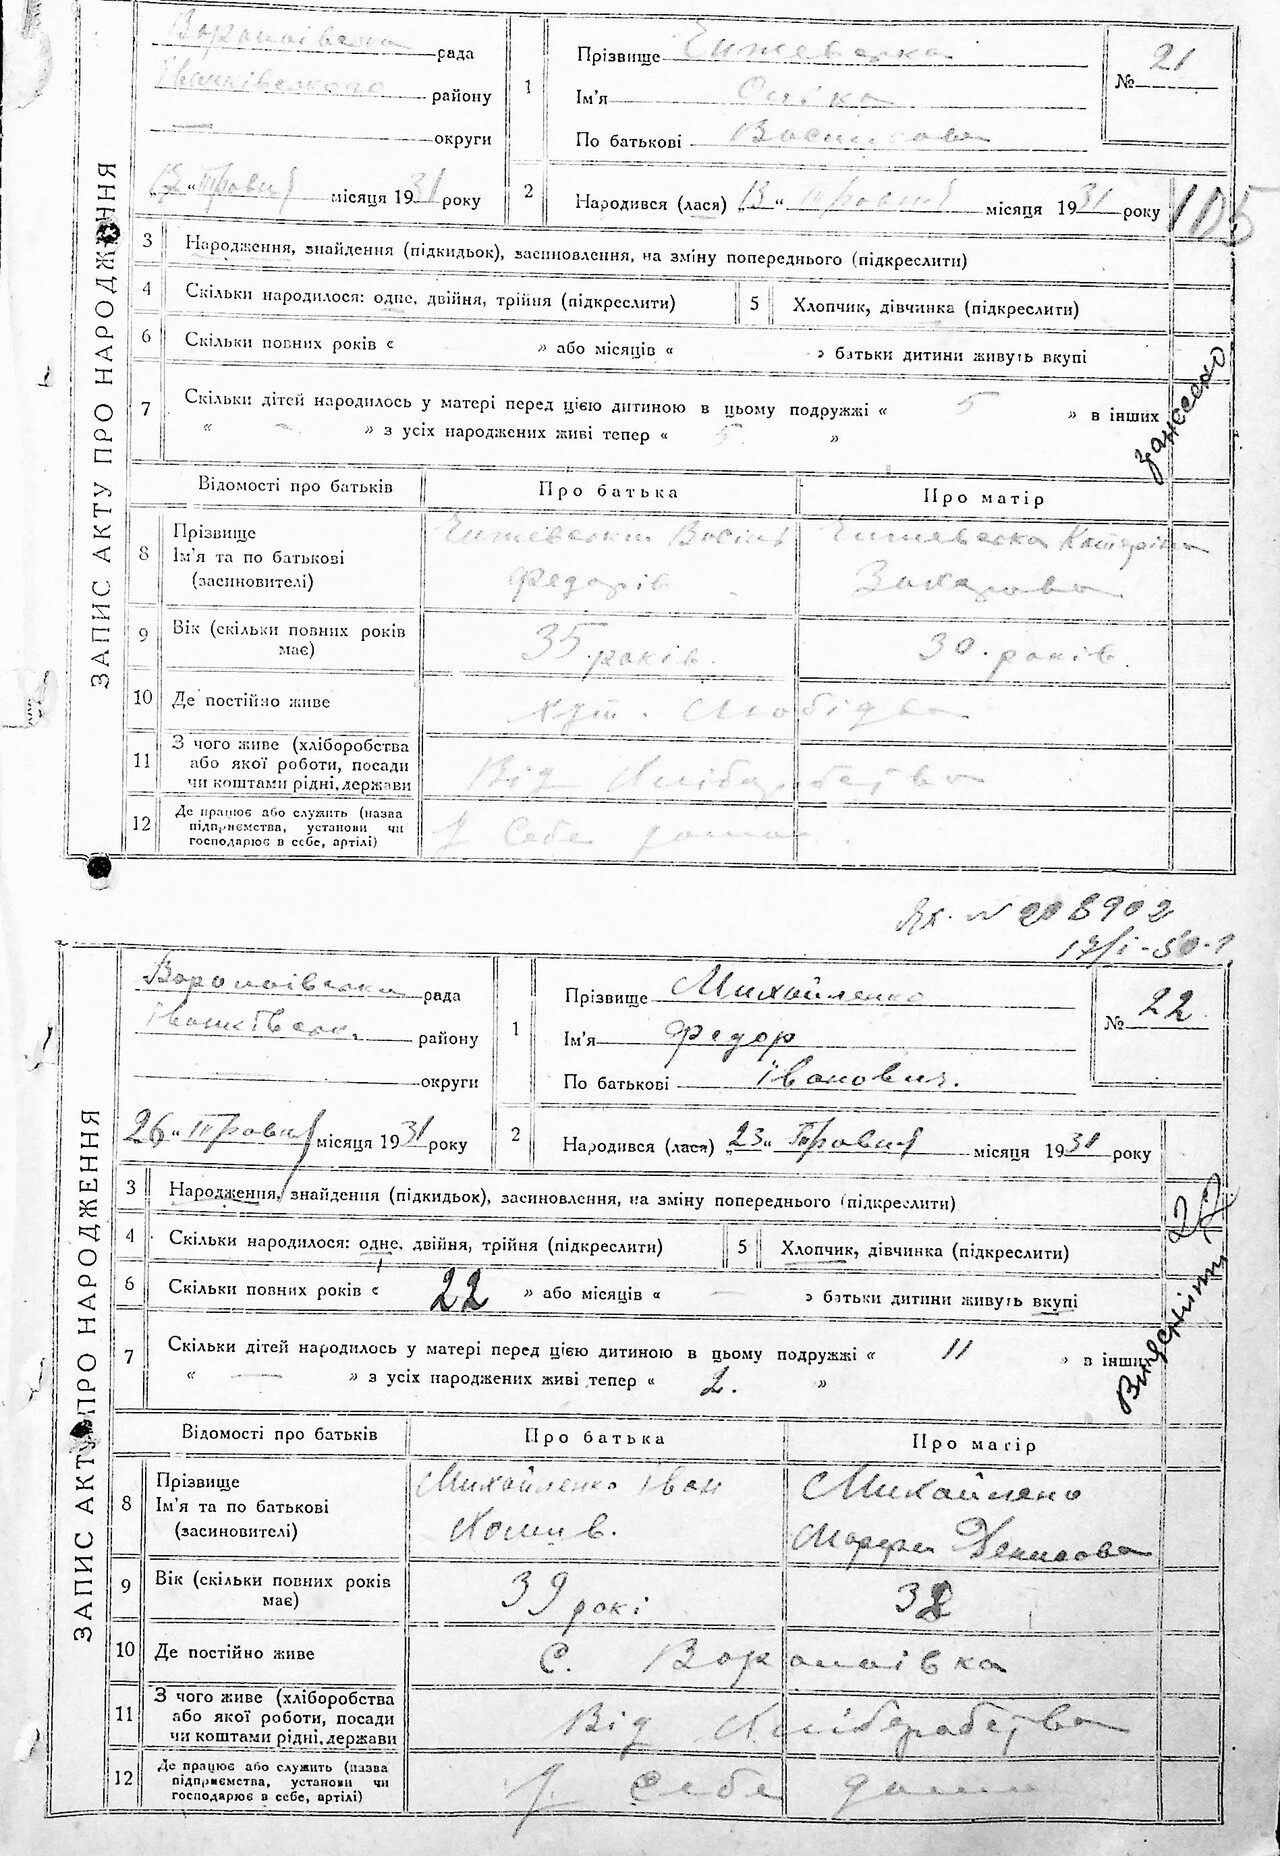 ЗАПИС АКТУ ПРО НАРОДЖЕННЯ
Воропаївська рада
Іванківського району
— округи
„13“ Травня місяця 1931 року
1
Прізвище
Ім'я
По батькові Василівна
№ 21
2
Народився (лася) „13“ Травня місяця 1931 року
105
3
Народження, знайдення (підкидьок), засиновлення, на зміну попереднього (підкреслити)
4
Скільки народилося: одне, двійня, трійня (підкреслити)
5
Хлопчик, дівчинка (підкреслити)
6
Скільки повних років « » або місяців « » батьки дитини живуть вкупі
7
Скільки дітей народилось у матері перед цією дитиною в цьому подружжі « 5 » в інших
« – » з усіх народжених живі тепер « 5. »
занесено
Відомості про батьків
Про батька
Про матір
8
Прізвище
Ім'я та по батькові
(засиновителі)
Василь
Федорів
Катерина
Захарова
9
Вік (скільки повних років має)
35 років
30 років
10
Де постійно живе
хут.
11
З чого живе (хліборобства
або якої роботи, посади
чи коштами рідні, держави
Від Хліборобства
12
Де працює або служить (назва
підприємства, установи чи
господарює в себе, артілі)
у Себе дома
№ 208902
17/I-50 г.
ЗАПИС АКТУ ПРО НАРОДЖЕННЯ
Воропаївська рада
Іванківськ. району
округи
26 „ Травня місяця 1931 року
1
Прізвище Михайленко
Ім'я Федор
По батькові Іванович.
№ 22
2
Народився (лася) „23“ Травня місяця 1931 року
3
Народження, знайдення (підкидьок), засиновлення, на зміну попереднього (підкреслити)
4
Скільки народилося: одне, двійня, трійня (підкреслити)
5
Хлопчик, дівчинка (підкреслити)
6
Скільки повних років « 22 » або місяців « — » батьки дитини живуть вкупі
7
Скільки дітей народилось у матері перед цією дитиною в цьому подружжі « 11 » в інших
« — » з усіх народжених живі тепер « 2. »
Відомості про батьків
Про батька
Про матір
8
Прізвище
Ім'я та по батькові
(засиновителі)
Михайленко Іван
Хомів.
Михайленко
Марфа Денисова
9
Вік (скільки повних років має)
39 рокі
32
10
Де постійно живе
С. Воропаівка
11
З чого живе (хліборобства
або якої роботи, посади
чи коштами рідні, держави
Від Хліборобства
12
Де працює або служить (назва
підприємства, установи чи
господарює в себе, артілі)
у Себе дома